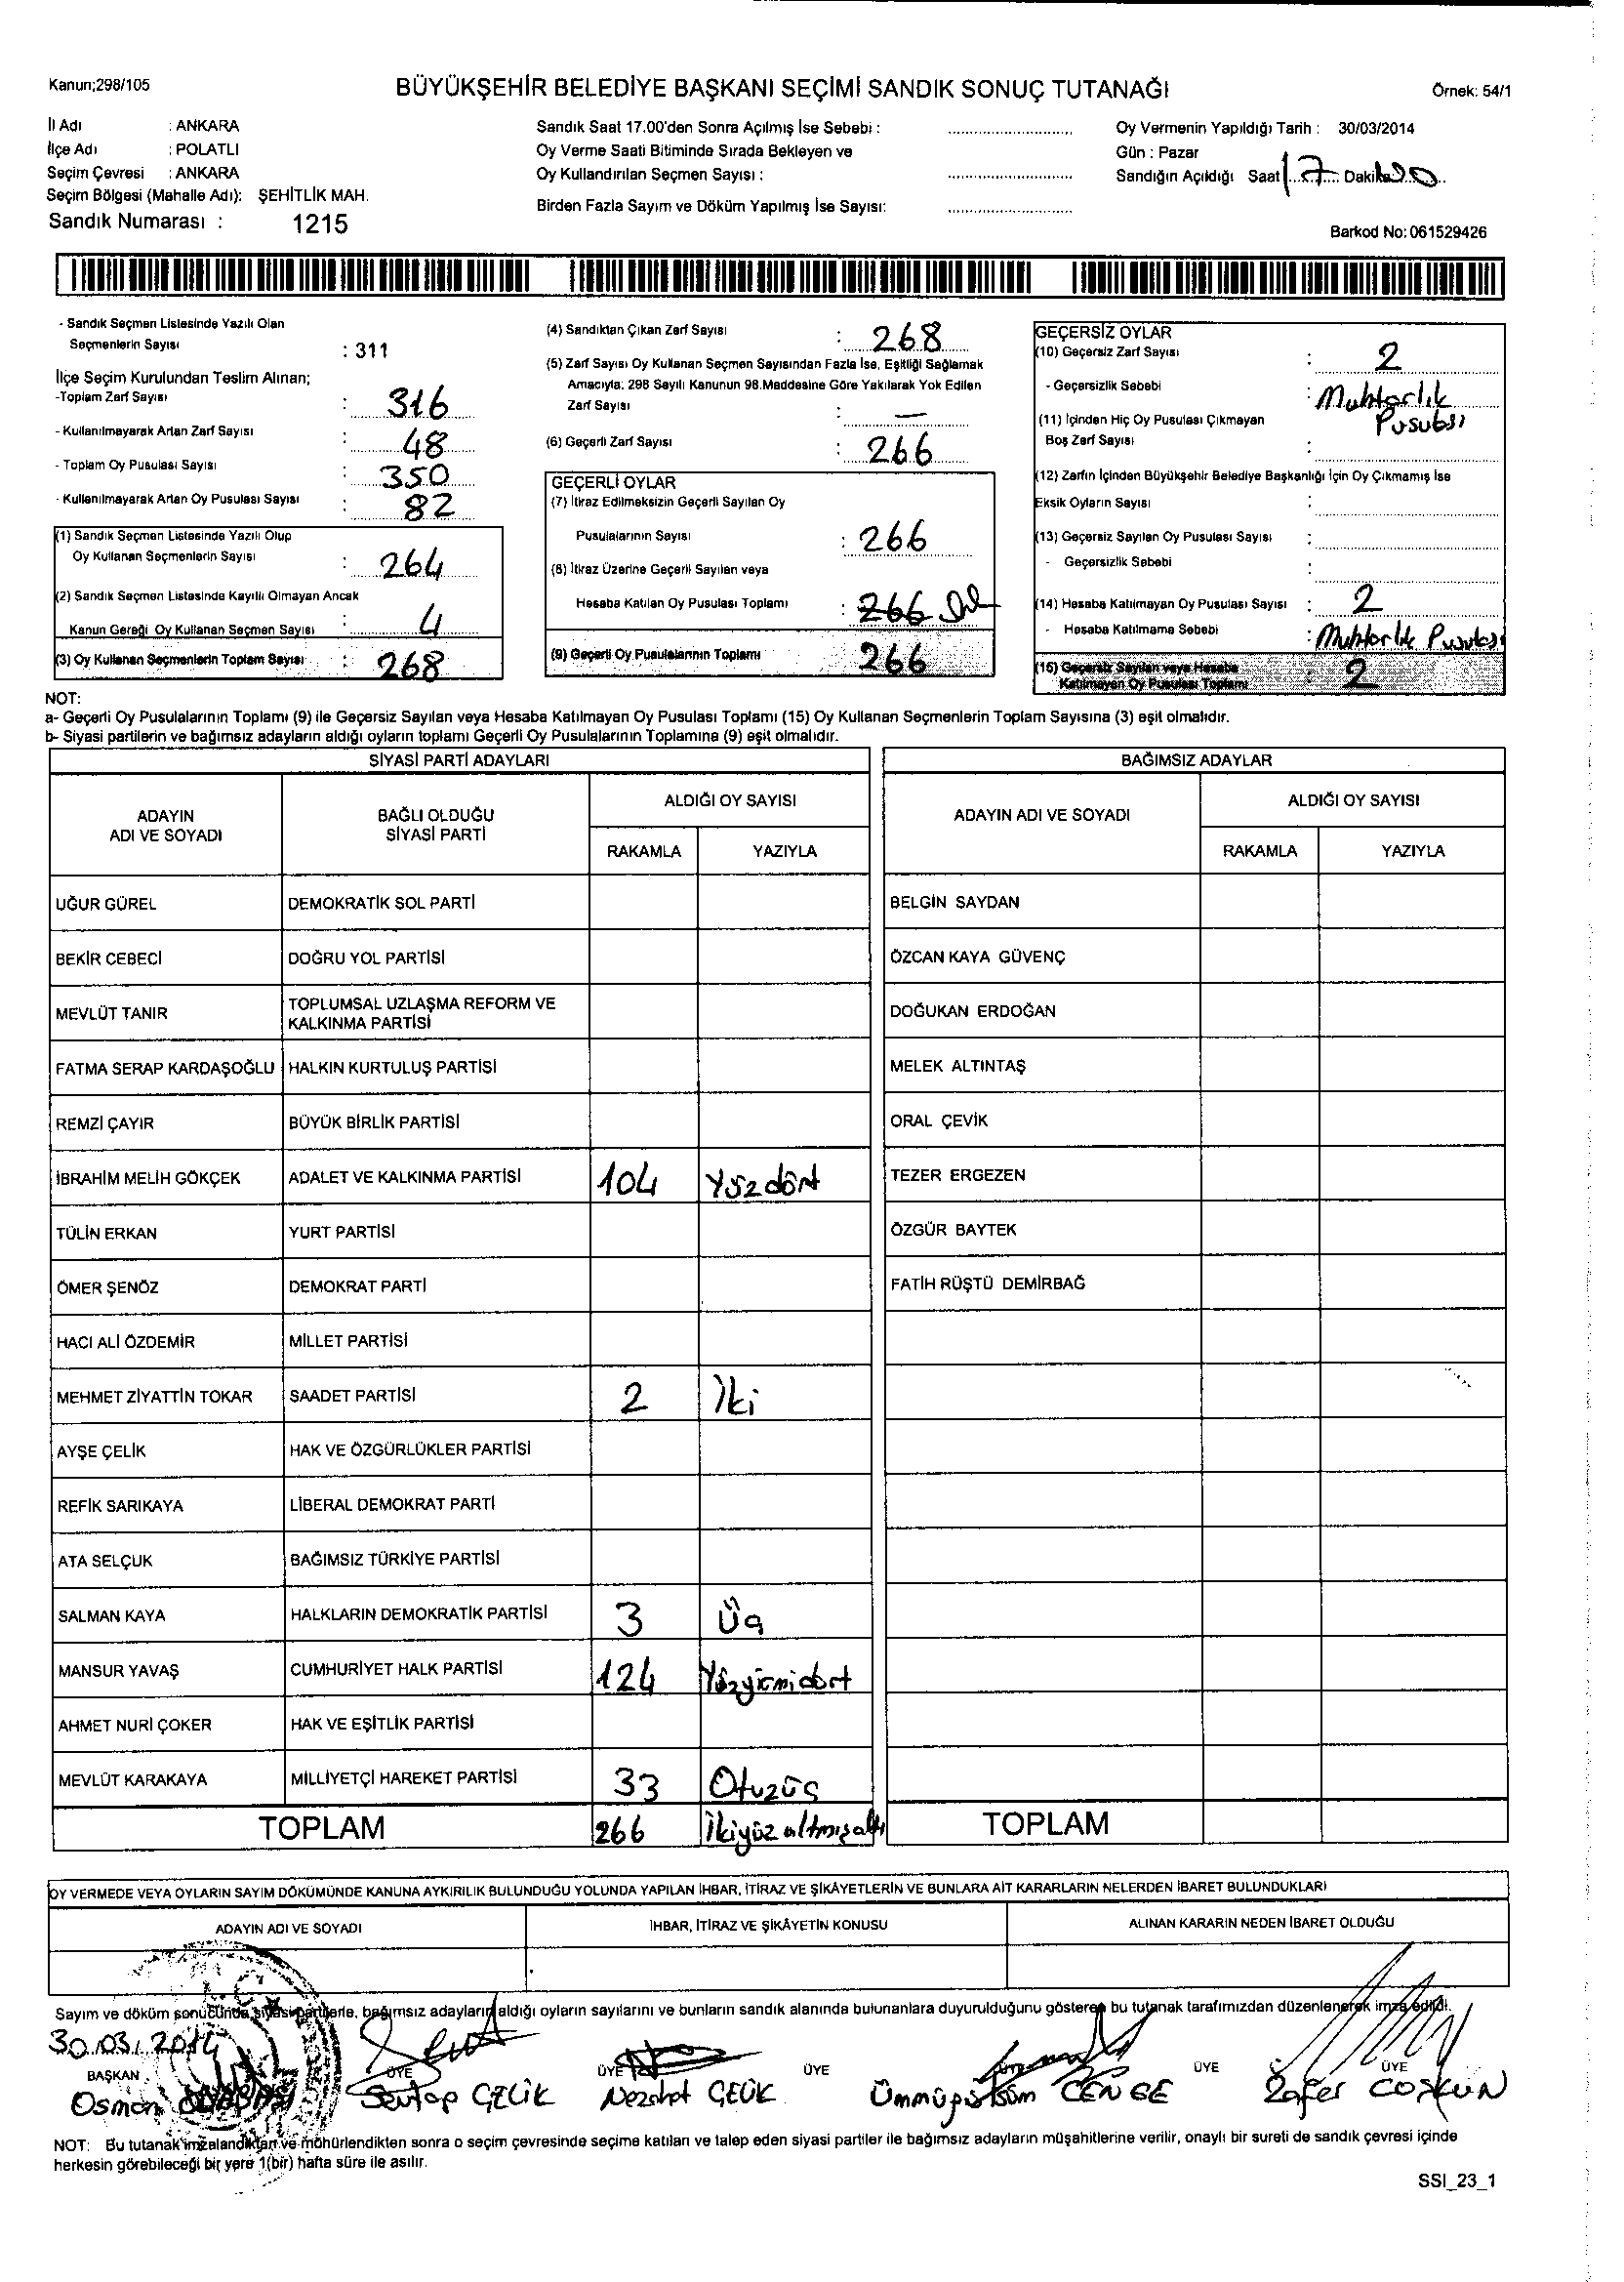 Kanun;298/105
BÜYÜKŞEHİR BELEDİYE BAŞKANI SEÇİMİ SANDIK SONUÇ TUTANAĞI
Örnek: 54/1
İl Adı : ANKARA
İlçe Adı : POLATLI
Seçim Çevresi : ANKARA
Seçim Bölgesi (Mahalle Adı): ŞEHİTLİK MAH.
Sandık Numarası : 1215
Sandık Saat 17.00'den Sonra Açılmış İse Sebebi :
Oy Verme Saati Bitiminde Sırada Bekleyen ve
Oy Kullandırılan Seçmen Sayısı :
Birden Fazla Sayım ve Döküm Yapılmış İse Sayısı:
Oy Vermenin Yapıldığı Tarih : 30/03/2014
Gün : Pazar
Sandığın Açıldığı Saat 17 Dakika
Barkod No: 061529426
- Sandık Seçmen Listesinde Yazılı Olan
Seçmenlerin Sayısı : 311
İlçe Seçim Kurulundan Teslim Alınan;
-Toplam Zarf Sayısı : 316
- Kullanılmayarak Artan Zarf Sayısı : 48
- Toplam Oy Pusulası Sayısı : 350
- Kullanılmayarak Artan Oy Pusulası Sayısı : 82
(1) Sandık Seçmen Listesinde Yazılı Olup
Oy Kullanan Seçmenlerin Sayısı : 264
(2) Sandık Seçmen Listesinde Kayıtlı Olmayan Ancak
Kanun Gereği Oy Kullanan Seçmen Sayısı : 4
(3) Oy Kullanan Seçmenlerin Toplam Sayısı : 268
(4) Sandıktan Çıkan Zarf Sayısı : 268
(5) Zarf Sayısı Oy Kullanan Seçmen Sayısından Fazla İse, Eşitliği Sağlamak
Amacıyla; 298 Sayılı Kanunun 98.Maddesine Göre Yakılarak Yok Edilen
Zarf Sayısı : —
(6) Geçerli Zarf Sayısı : 266
GEÇERLİ OYLAR
(7) İtiraz Edilmeksizin Geçerli Sayılan Oy
Pusulalarının Sayısı : 266
(8) İtiraz Üzerine Geçerli Sayılan veya
Hesaba Katılan Oy Pusulası Toplamı : 266
(9) Geçerli Oy Pusulalarının Toplamı 266
GEÇERSİZ OYLAR
(10) Geçersiz Zarf Sayısı : 2
- Geçersizlik Sebebi : Muhtarlık
Pusulası
(11) İçinden Hiç Oy Pusulası Çıkmayan
Boş Zarf Sayısı :
(12) Zarfın İçinden Büyükşehir Belediye Başkanlığı İçin Oy Çıkmamış İse
Eksik Oyların Sayısı :
(13) Geçersiz Sayılan Oy Pusulası Sayısı :
- Geçersizlik Sebebi :
(14) Hesaba Katılmayan Oy Pusulası Sayısı : 2
- Hesaba Katılmama Sebebi : Muhtarlık Pusulası
(15) Geçersiz Sayılan veya Hesaba
Katılmayan Oy Pusulası Toplamı : 2
NOT:
a- Geçerli Oy Pusulalarının Toplamı (9) ile Geçersiz Sayılan veya Hesaba Katılmayan Oy Pusulası Toplamı (15) Oy Kullanan Seçmenlerin Toplam Sayısına (3) eşit olmalıdır.
b- Siyasi partilerin ve bağımsız adayların aldığı oyların toplamı Geçerli Oy Pusulalarının Toplamına (9) eşit olmalıdır.
SİYASİ PARTİ ADAYLARI
ADAYIN
ADI VE SOYADI
BAĞLI OLDUĞU
SİYASİ PARTİ
ALDIĞI OY SAYISI
RAKAMLA YAZIYLA
UĞUR GÜREL DEMOKRATİK SOL PARTİ
BEKİR CEBECİ DOĞRU YOL PARTİSİ
MEVLÜT TANIR TOPLUMSAL UZLAŞMA REFORM VE
KALKINMA PARTİSİ
FATMA SERAP KARDAŞOĞLU HALKIN KURTULUŞ PARTİSİ
REMZİ ÇAYIR BÜYÜK BİRLİK PARTİSİ
İBRAHİM MELİH GÖKÇEK ADALET VE KALKINMA PARTİSİ 104 Yüzdört
TÜLİN ERKAN YURT PARTİSİ
ÖMER ŞENÖZ DEMOKRAT PARTİ
HACI ALİ ÖZDEMİR MİLLET PARTİSİ
MEHMET ZİYATTİN TOKAR SAADET PARTİSİ 2 İki
AYŞE ÇELİK HAK VE ÖZGÜRLÜKLER PARTİSİ
REFİK SARIKAYA LİBERAL DEMOKRAT PARTİ
ATA SELÇUK BAĞIMSIZ TÜRKİYE PARTİSİ
SALMAN KAYA HALKLARIN DEMOKRATİK PARTİSİ 3 Üç
MANSUR YAVAŞ CUMHURİYET HALK PARTİSİ 124 Yüzyirmidört
AHMET NURİ ÇOKER HAK VE EŞİTLİK PARTİSİ
MEVLÜT KARAKAYA MİLLİYETÇİ HAREKET PARTİSİ 33 Otuzüç
TOPLAM 266 İkiyüzaltmışaltı
BAĞIMSIZ ADAYLAR
ADAYIN ADI VE SOYADI
ALDIĞI OY SAYISI
RAKAMLA YAZIYLA
BELGİN SAYDAN
ÖZCAN KAYA GÜVENÇ
DOĞUKAN ERDOĞAN
MELEK ALTINTAŞ
ORAL ÇEVİK
TEZER ERGEZEN
ÖZGÜR BAYTEK
FATİH RÜŞTÜ DEMİRBAĞ
TOPLAM
OY VERMEDE VEYA OYLARIN SAYIM DÖKÜMÜNDE KANUNA AYKIRILIK BULUNDUĞU YOLUNDA YAPILAN İHBAR, İTİRAZ VE ŞİKÂYETLERİN VE BUNLARA AİT KARARLARIN NELERDEN İBARET BULUNDUKLARI
ADAYIN ADI VE SOYADI İHBAR, İTİRAZ VE ŞİKÂYETİN KONUSU ALINAN KARARIN NEDEN İBARET OLDUĞU
Sayım ve döküm sonucunda, siyasi partilerle, bağımsız adayların aldığı oyların sayılarını ve bunların sandık alanında bulunanlara duyurulduğunu gösteren bu tutanak tarafımızdan düzenlenerek imza edildi.
30.03.2014
BAŞKAN ÜYE ÜYE ÜYE ÜYE ÜYE
Osman Sevtap ÇELİK Nezahat ÇELİK Ümmügülsüm CENGE Zafer COŞKUN
NOT: Bu tutanak imzalandıktan ve mühürlendikten sonra o seçim çevresinde seçime katılan ve talep eden siyasi partiler ile bağımsız adayların müşahitlerine verilir, onaylı bir sureti de sandık çevresi içinde
herkesin görebileceği bir yere 1(bir) hafta süre ile asılır.
SSI_23_1